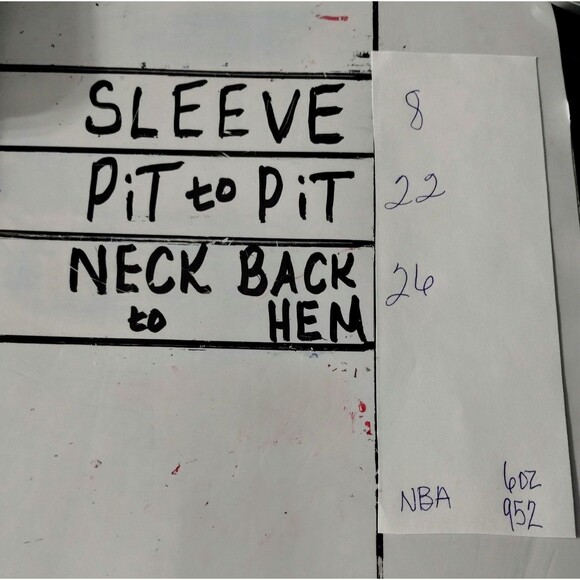 SLEEVE 8
PiT to PiT 22
NECK BACK 26
to HEM
NBA 6oz
952